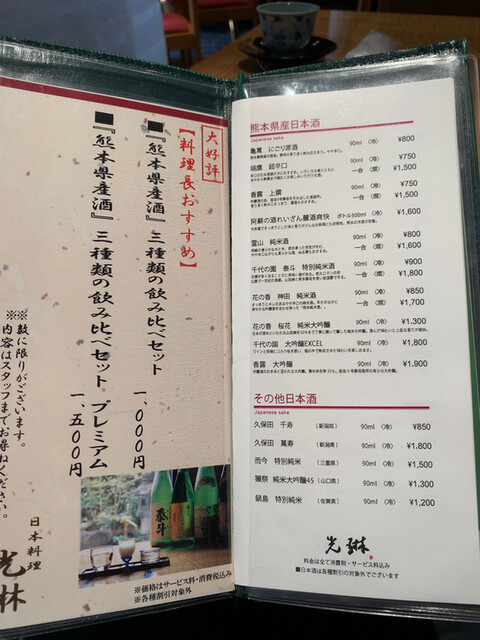 大好評
【料理長おすすめ】
■『熊本県産酒』三種類の飲み比べセット
一、〇〇〇円
■『熊本県産酒』三種類の飲み比べセット プレミアム
一、五〇〇円
※数に限りがございます。
※内容はスタッフまでお尋ねください。
日本料理
光琳
泰斗
※価格はサービス料・消費税込み
※各種割引対象外
熊本県産日本酒
Japanese sake
亀萬 にごり原酒 90ml (冷) ¥800
瑞鷹 超辛口 90ml (冷) ¥750
一合 (燗) ¥1,500
香露 上撰 90ml (冷) ¥750
一合 (燗) ¥1,500
阿蘇の酒れいざん醸酒爽快 ボトル300ml (冷) ¥1,600
霊山 純米酒 90ml (冷) ¥800
一合 (燗) ¥1,600
千代の園 泰斗 特別純米酒 90ml (冷) ¥900
一合 (燗) ¥1,800
花の香 神田 純米酒 90ml (冷) ¥850
一合 (燗) ¥1,700
花の香 桜花 純米大吟醸 90ml (冷) ¥1,300
千代の園 大吟醸EXCEL 90ml (冷) ¥1,800
香露 大吟醸 90ml (冷) ¥1,900
その他日本酒
Japanese sake
久保田 千寿 (新潟県) 90ml (冷) ¥850
久保田 萬寿 (新潟県) 90ml (冷) ¥1,800
而今 特別純米 (三重県) 90ml (冷) ¥1,500
獺祭 純米大吟醸45 (山口県) 90ml (冷) ¥1,300
鍋島 特別純米 (佐賀県) 90ml (冷) ¥1,200
光琳
料金は全て消費税・サービス料込み
■日本酒は各種割引の対象外でございます